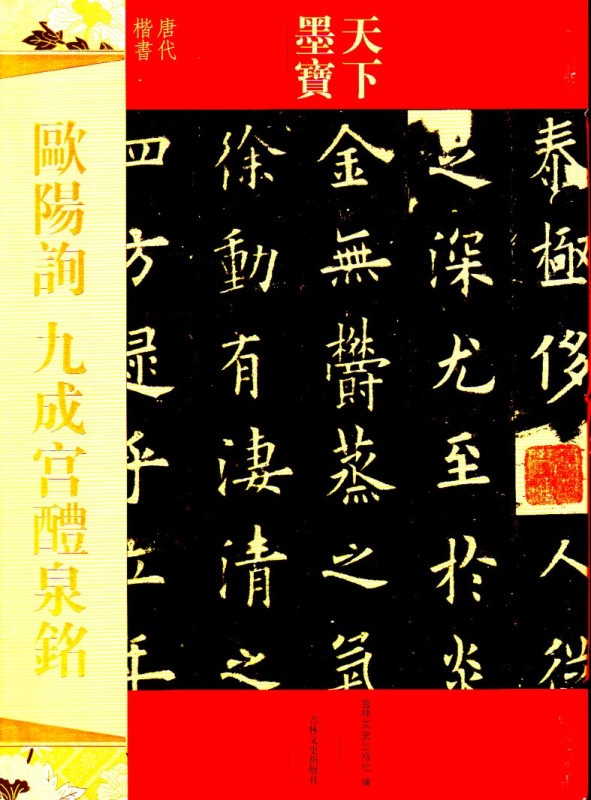 天下
墨寶
唐代
楷書
泰極侈人從
之深尤至於炎
金無鬱蒸之氣
徐動有淒清之
四方逮乎立年
歐陽詢 九成宫醴泉銘
吉林文史出版社 編
吉林文史出版社